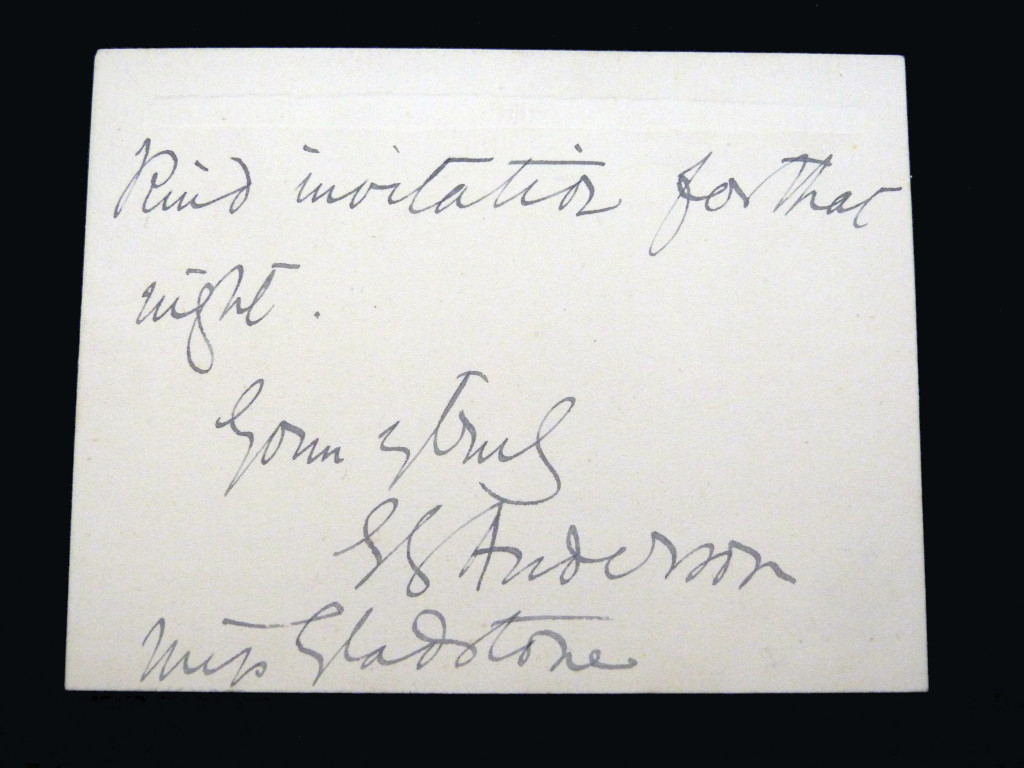 Kind invitation for that
night.
Yours truly
E G Anderson
Miss Gladstone